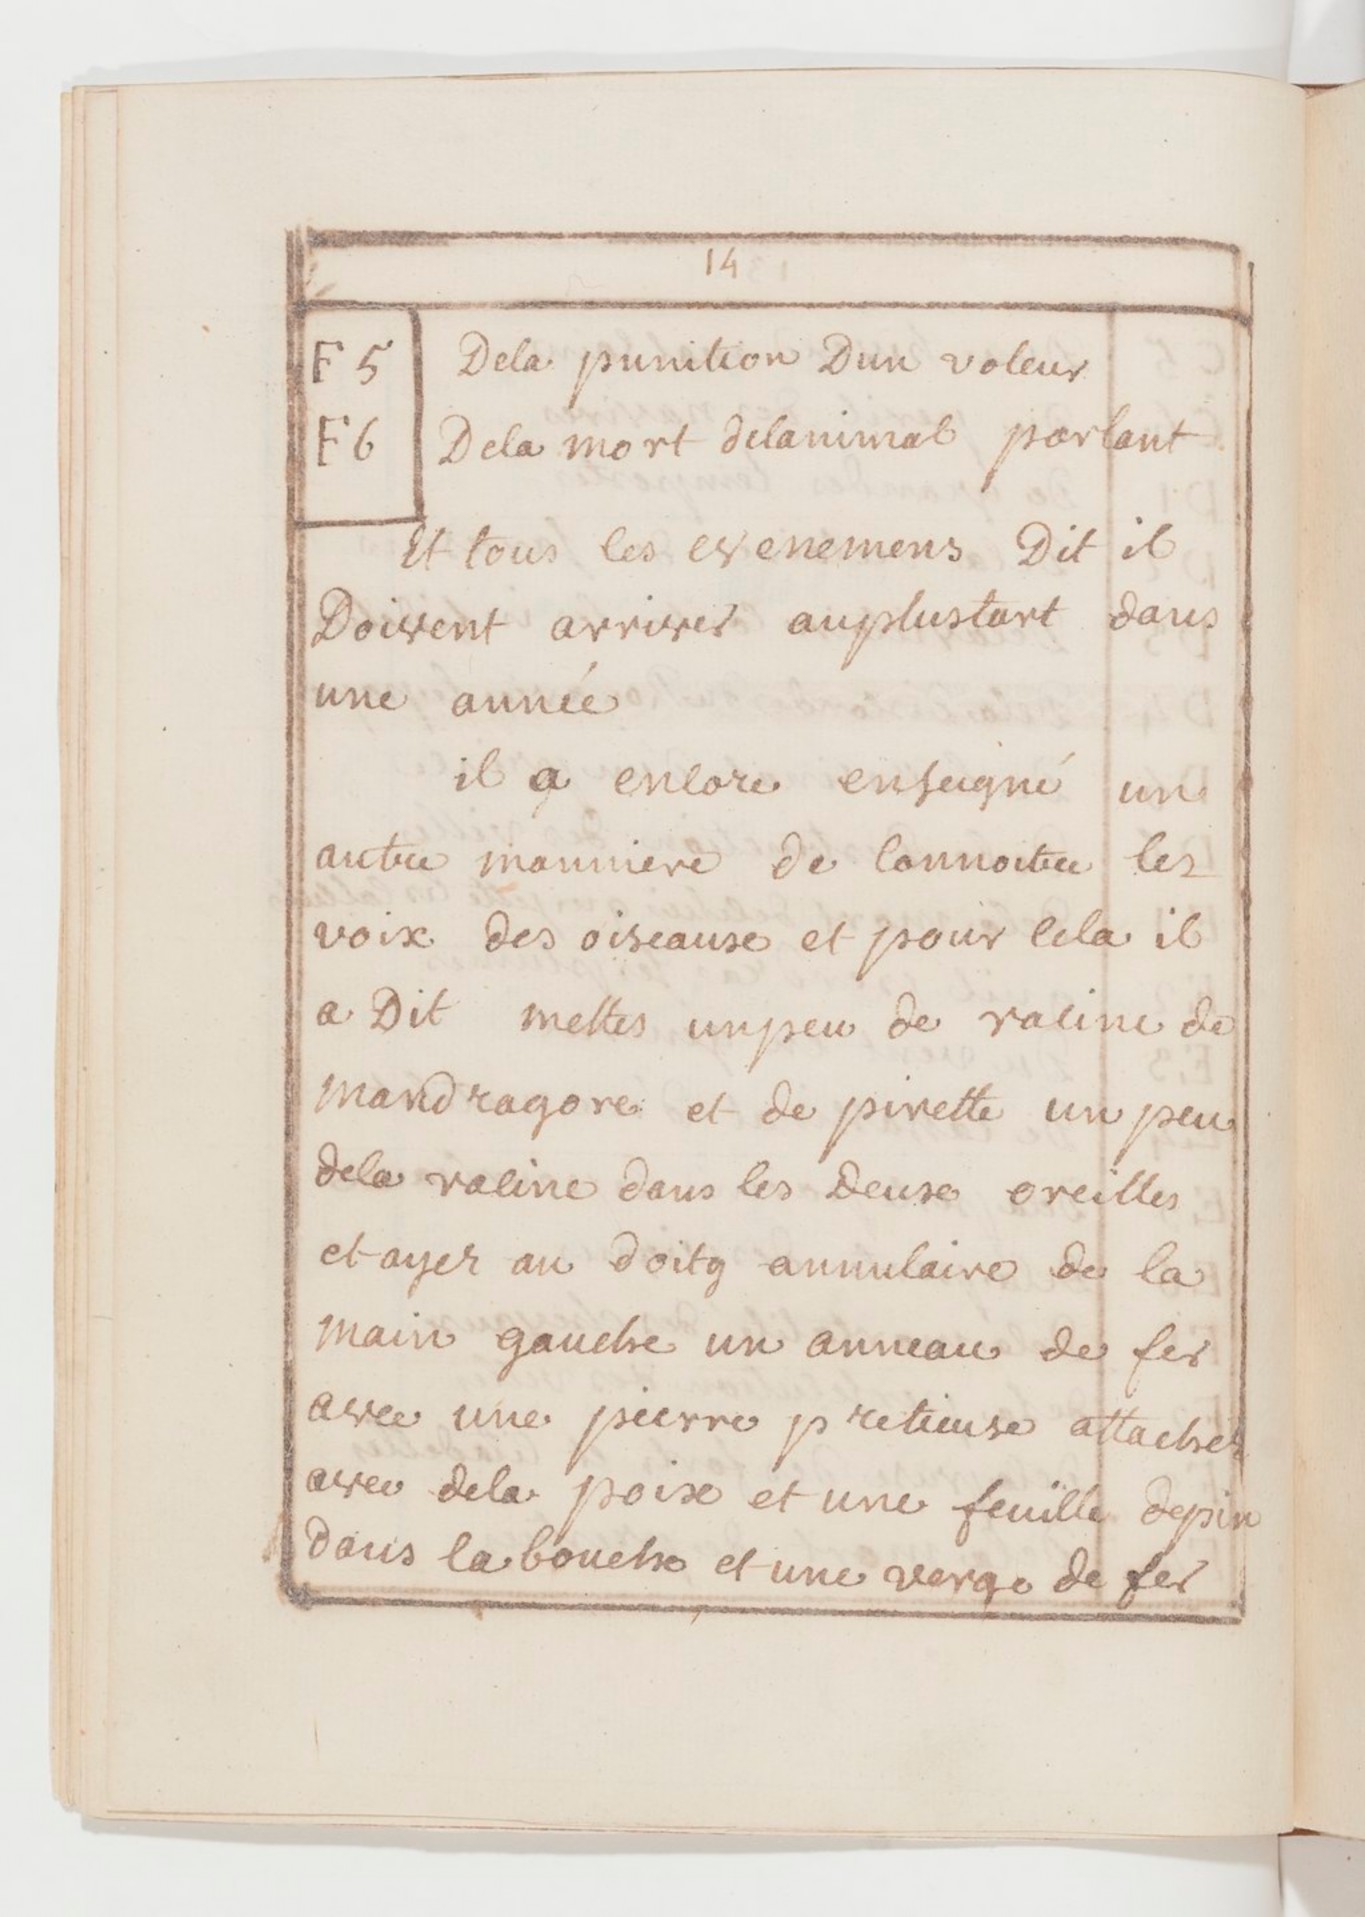 14
F 5 Dela punition Dun voleur
F 6 Dela mort delanimal parlant
Et tous les evenemens Dit il
Doivent arriver auplustart dans
une année
il a encore enseigné un
autre manniere de connoitre les
voix des oiseause et pour cela il
a Dit mettes unpeu de racine de
mandragore et de pirette un peu
dela racine dans les deuse oreilles
et ayez au doitg annulaire de la
main gauche un anneau de fer
avec une pierre pretieuse attachez
avec dela poix et une feuïlle depin
dans la bouche et une verge de fer